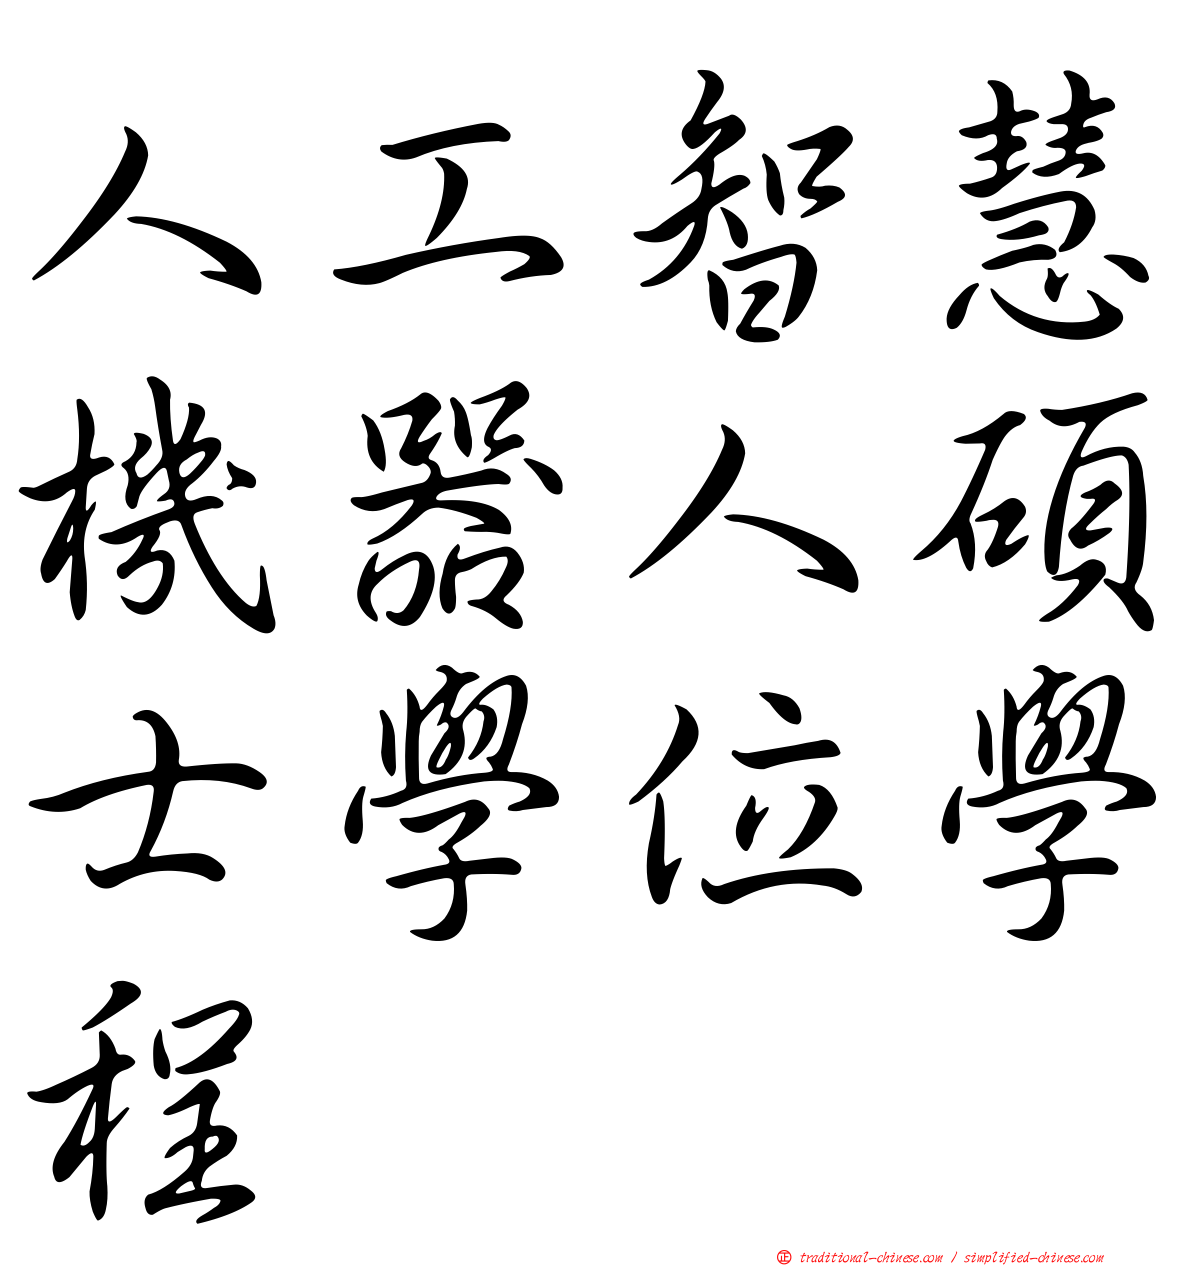 人工智慧
機器人碩
士學位學
程
正 traditional-chinese.com / simplified-chinese.com